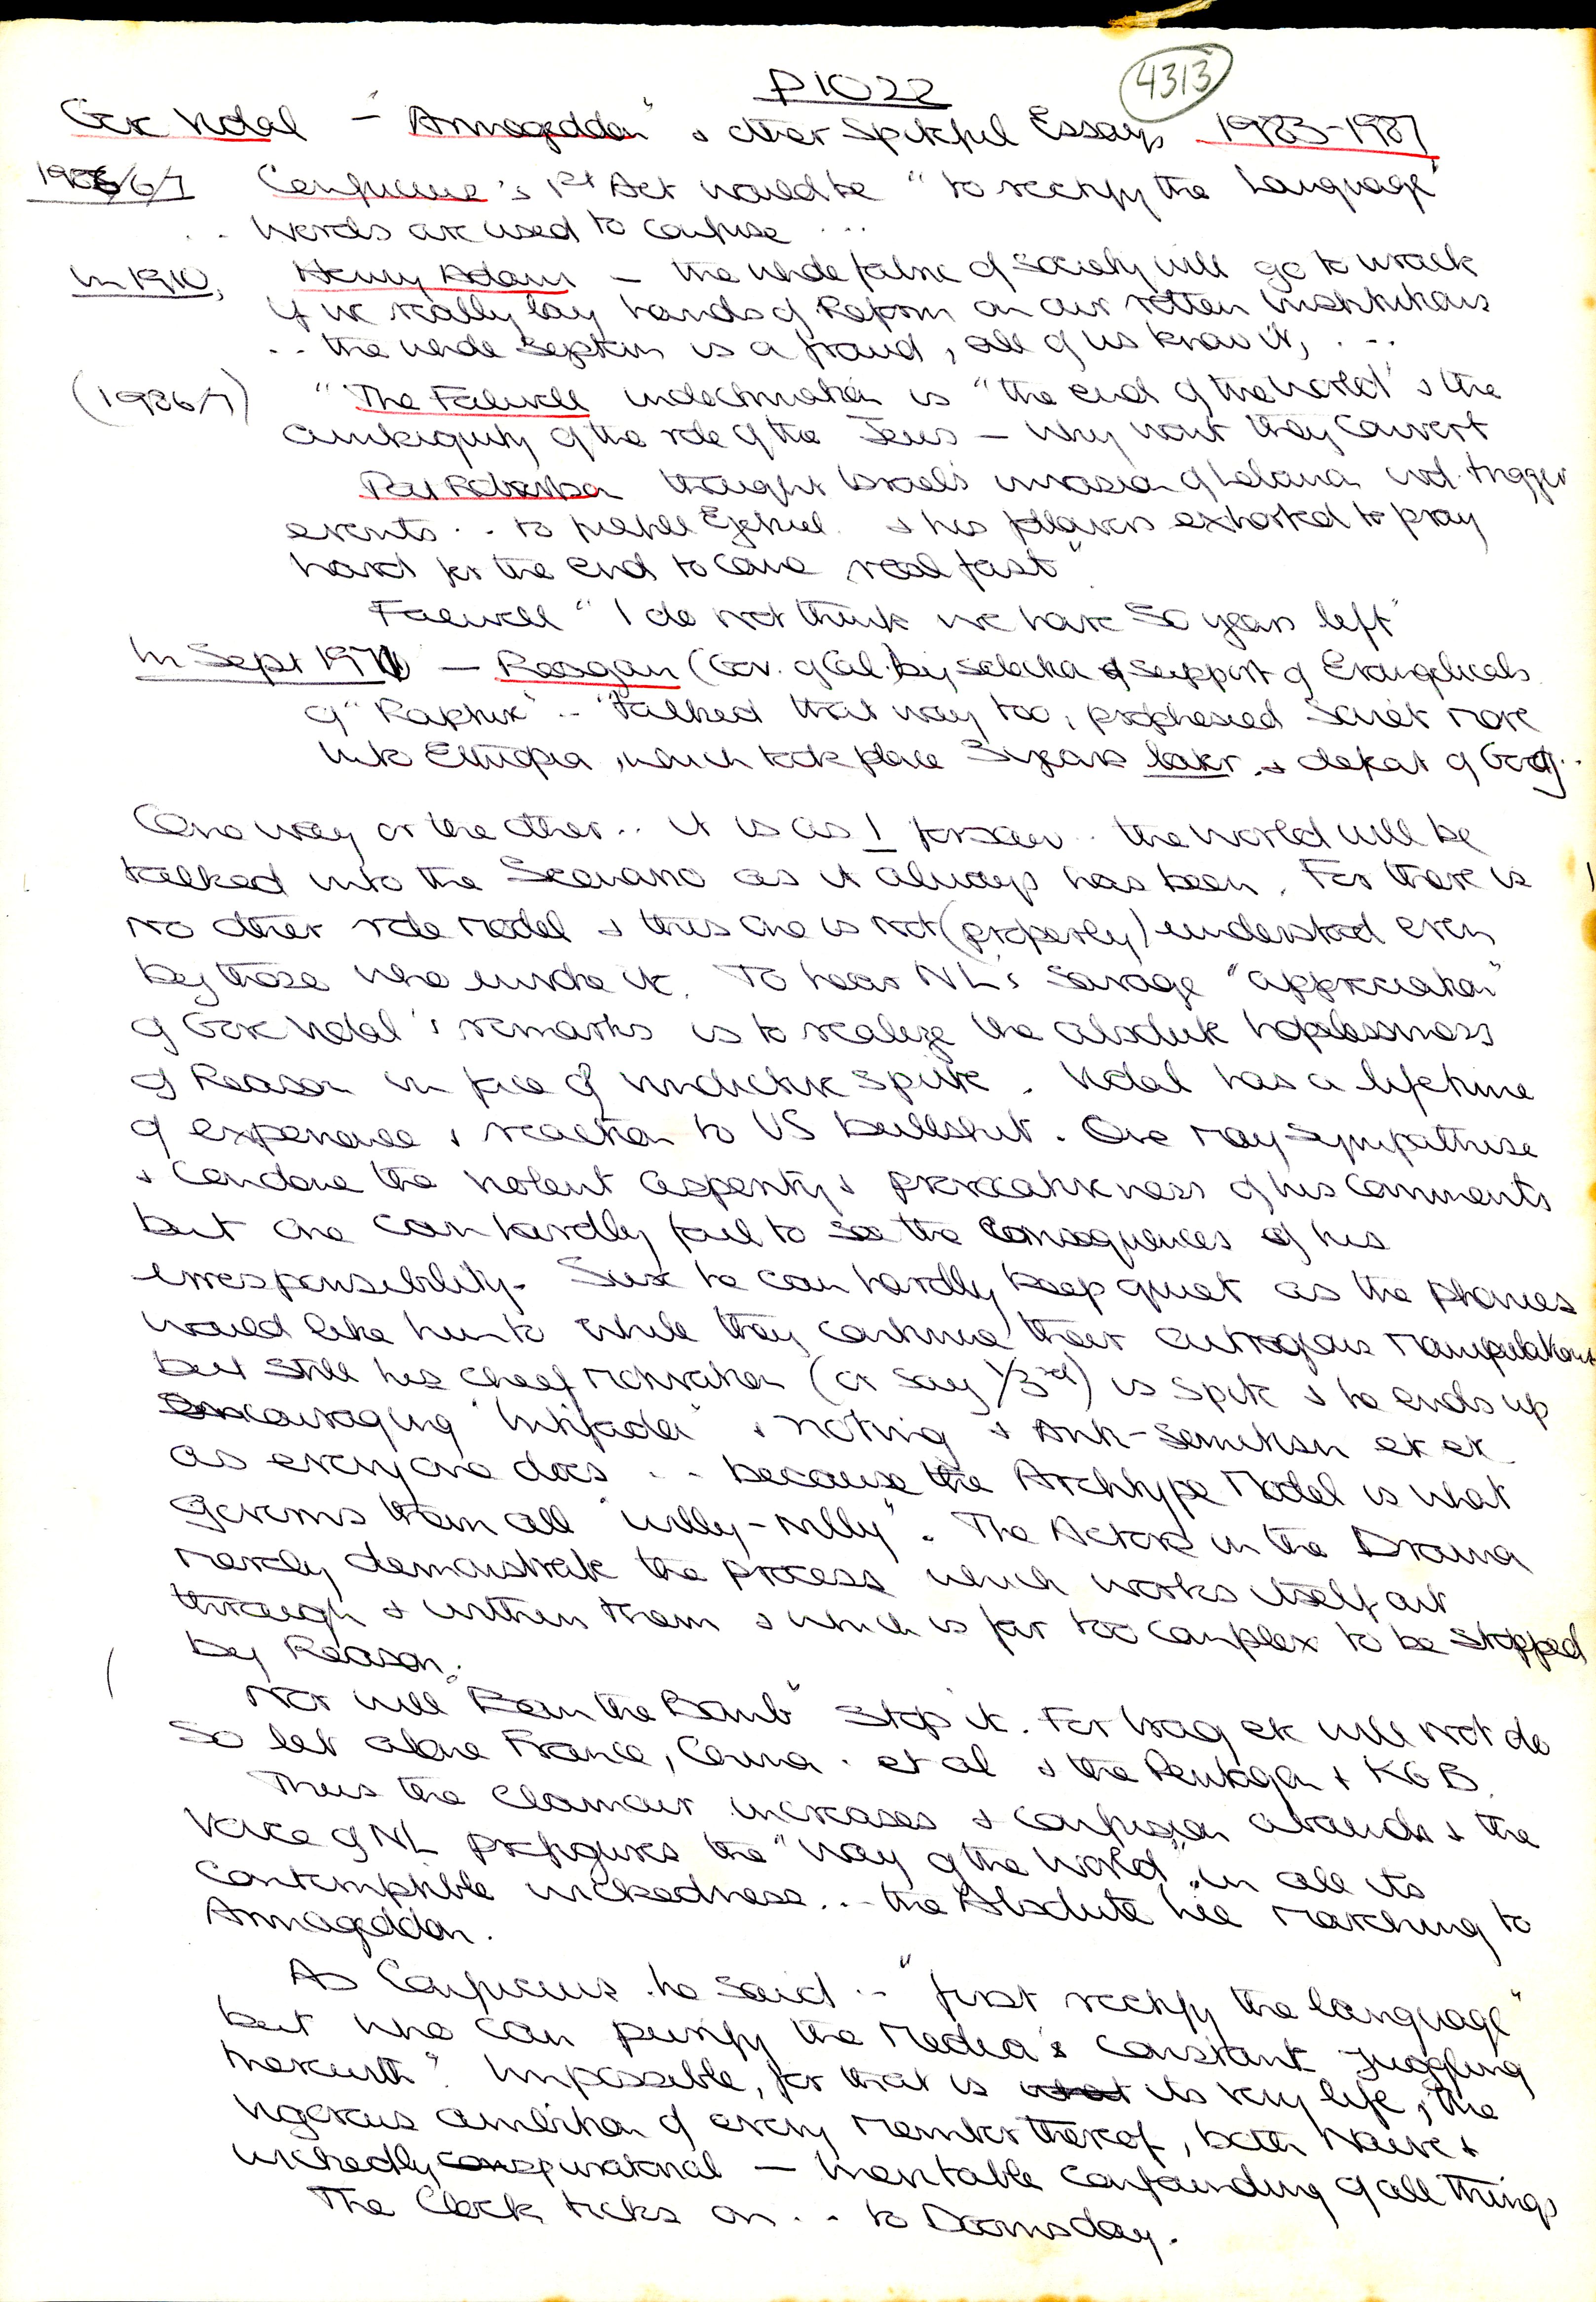 P1022
4313
Gore Vidal – "Armageddon" & other Spiteful Essays 1983-1987
1986/7 Confucius's 1st Act would be "to rectify the Language"
.. Words are used to confuse ...
In 1910, Henry Adams – the whole fabric of society will go to wrack
if we really lay hands of Reform on our rotten Institutions
.. the whole System is a fraud, all of us know it, ...
(1986/7) "The Falwell indoctrination is "the end of the World" & the
ambiguity of the role of the Jews – Why wont they Convert
Pat Robertson thought Israel's invasion of Lebanon wd. trigger
events .. to fulfill Ezekiel. & his followers exhorted to pray
hard for the End to come real fast"
Falwell "I do not think we have 50 years left"
In Sept 1971 – Reagan (Gov. of Cal. by selection & support of Evangelicals
of "Rapture" .. talked that way too, prophesied Soviet move
into Ethiopia, which took place 3 years later & defeat of Gog..
One way or the other .. it is as I forsaw .. the world will be
talked into the Scenario as it always has been. For there is
no other role model & this one is not (properly) understood even
by those who invoke it. To hear NL's Savage "appreciation"
of Gore Vidal's remarks is to realize the absolute hopelessness
of Reason in face of vindictive spite. Vidal has a lifetime
of experience & reaction to US bullshit. One may sympathise
& condone the violent asperity & provocativeness of his comments
but one can hardly fail to see the Consequences of his
irresponsibility. Sure he can hardly keep quiet as the phonies
would like him to while they continue their outrageous manipulations
but still his cheef motivation (or say 1/3rd) is spite & he ends up
encouraging "Intifada" & rioting & Anti-Semitism et et
as everyone does ... because the Archtype Model is what
governs them all "willy-nilly". The Actors in the Drama
merely demonstrate the process which works itself out
through & within them & which is far too complex to be stopped
by Reason.
Nor will "Ban the Bomb" stop it. For Iraq etc will not do
so let alone France, China. et al & the Pentagon & KGB.
Thus the Clamour increases & confusion abounds & the
Voice of NL prefigures the "Way of the World" in all its
Contemptible wickedness ... the Absolute Lie marching to
Armageddon.
As Confucius he said .. "first rectify the language"
but who can purify the Media's constant juggling
therewith? Impossible, for that is its very life, the
vigorous ambition of every member thereof, both Naive &
wickedly conspiratorial – Inevitable Confounding of all Things
The Clock ticks on .. to Doomsday.